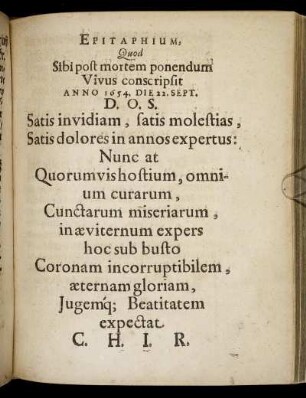 EPITAPHIUM,
Quod
Sibi post mortem ponendum
Vivus conscripsit
ANNO 1654. DIE 22. SEPT.
D. O. S.
Satis invidiam, satis molestias,
Satis dolores in annos expertus:
Nunc at
Quorumvis hostium, omni-
um curarum,
Cunctarum miseriarum,
in æviternum expers
hoc sub busto
Coronam incorruptibilem,
æternam gloriam,
Jugemq́; Beatitatem
expectat.
C. H. I. R.